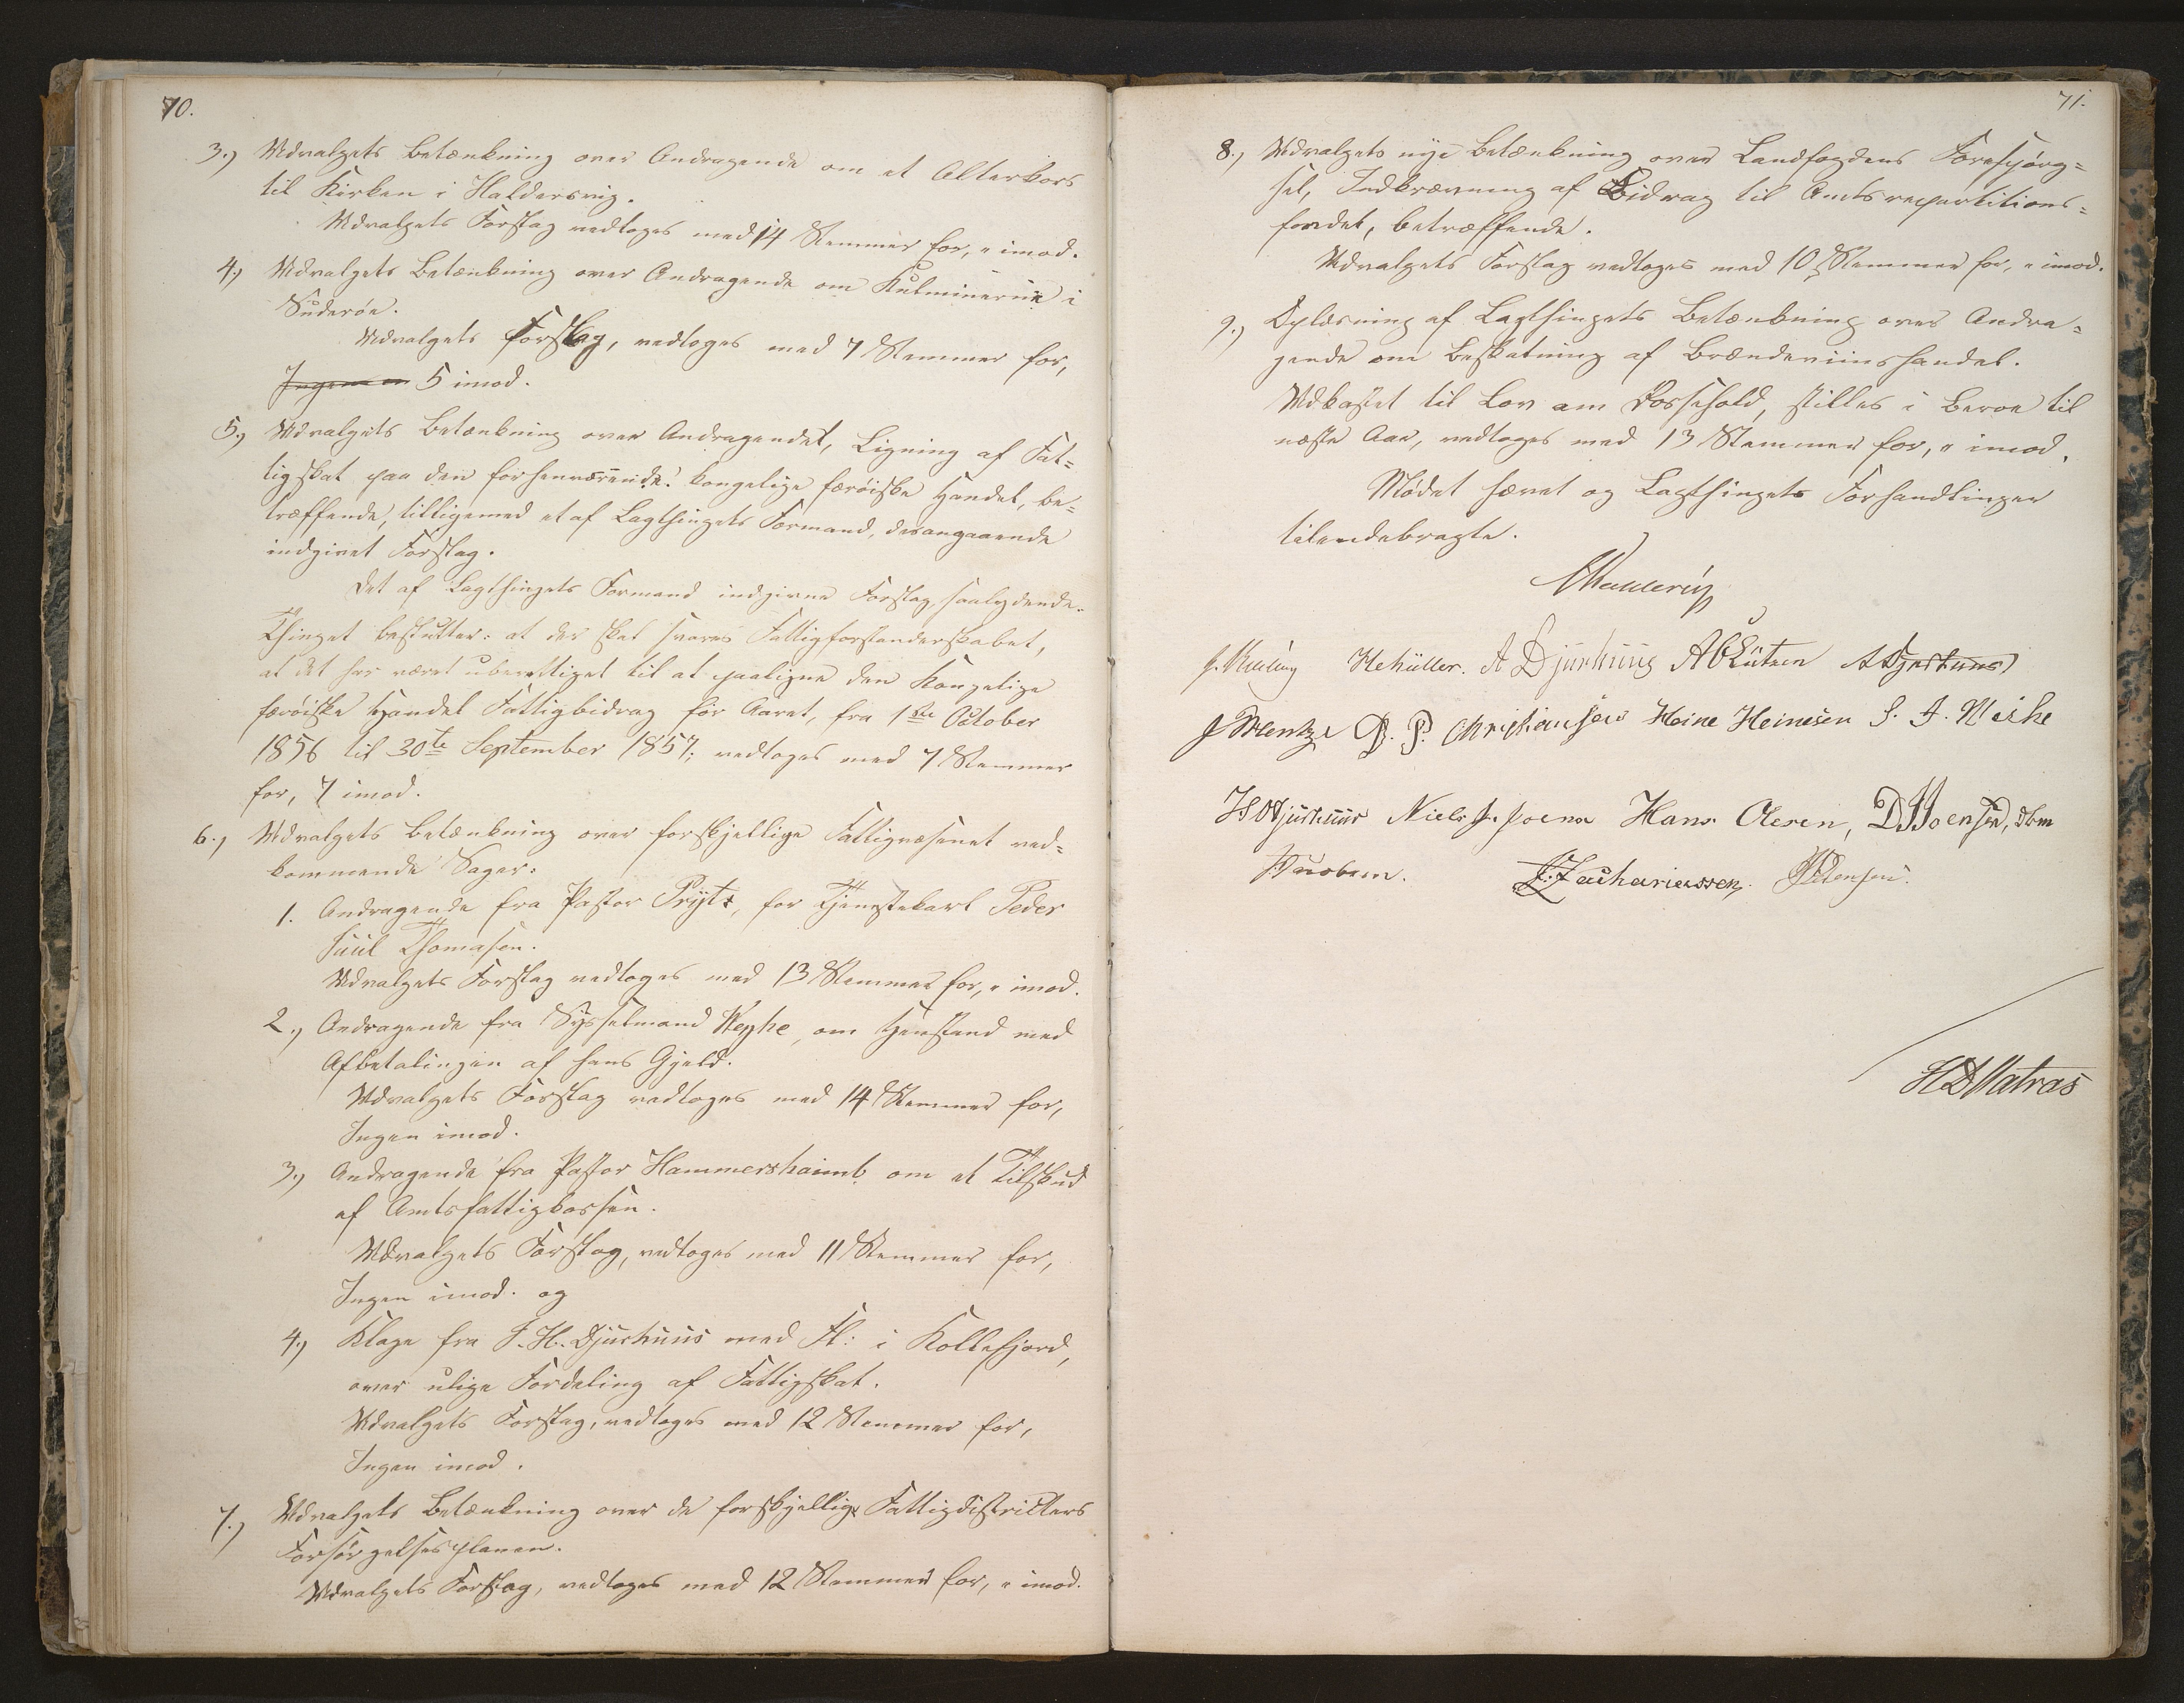 70.
3.) Udvalgets Betænkning over Andragende om et Alterkors
til Kirken i Haldersvig.
Udvalgets Forslag vedtoges med 14 Stemmer for, " imod.
4.) Udvalgets Betænkning over Andragende om Kulminerne i
Suderöe.
Udvalgets Forslag, vedtoges med 7 Stemmer for,
Ingen im 5 imod.
5.) Udvalgets Betænkning over Andragendet, Ligning af Fat=
tigskat paa den forhenværende kongelige færöiske Handel, be=
træffende, tilligemed et af Lagthingets Formand, desangaaende
indgivet Forslag.
Det af Lagthingets Formand indgivne Forslag, saalydende.
Thinget beslutter: at der skal svares Fattigforstanderskabet,
at det har været uberettiget til at paaligne den Kongelige
færöiske Handel Fattigbidrag for Aaret, fra 1ste October
1856 til 30te September 1857; vedtoges med 7 Stemmer
for, 7 imod.
6.) Udvalgets Betænkning over forskjellige Fattigvæsenet ved=
kommende Sager:
1. Andragende fra Pastor Prytz, for Tjenestekarl Peder
Juul Thomasen.
Udvalgets Forslag vedtoges med 13 Stemmer for, " imod.
2.) Andragende fra Sysselmand Weyhe, om Henstand med
Afbetalingen af hans Gjeld.
Udvalgets Forslag vedtoges med 14 Stemmer for,
Ingen imod.
3.) Andragende fra Pastor Hammershaimb om et Tilskud
af Amtsfattigkassen.
Udvalgets Forslag, vedtoges med 11 Stemmer for,
Ingen imod. og
4.) Klage fra J. H. Djurhuus med Fl: i Kollefjord,
over ulige Fordeling af Fattigskat.
Udvalgets Forslag, vedtoges med 12 Stemmer for,
Ingen imod.
7.) Udvalgets Betænkning over de forskjellige Fattigdistricters
Forsörgelsesplaner.
Udvalgets Forslag, vedtoges med 12 Stemmer for, " imod.
71.
8.) Udvalgets nye Betænkning over Landfogdens Forespörg=
sel, Indkrævning af Bidrag til Amtsrepartitions=
fondet, betræffende.
Udvalgets Forslag vedtoges med 10 Stemmer for, " imod.
9.) Oplæsning af Lagthingets Betænkning over Andra=
gende om Beskatning af Brændeviinshandel.
Udkastet til Lov om Fossehold, stilles i Beroe til
næste Aar, vedtoges med 13 Stemmer for, " imod.
Mödet hævet og Lagthingets Forhandlinger
tilendebragte.
HMüller. A Djurhuus A C Lützen
D. P. Christiansen Heine Heinesen S. F. Weihe
Niels J. Joensen Hans Olesen, D Joensen, Dbm
J. Zachariassen.
H D Matras